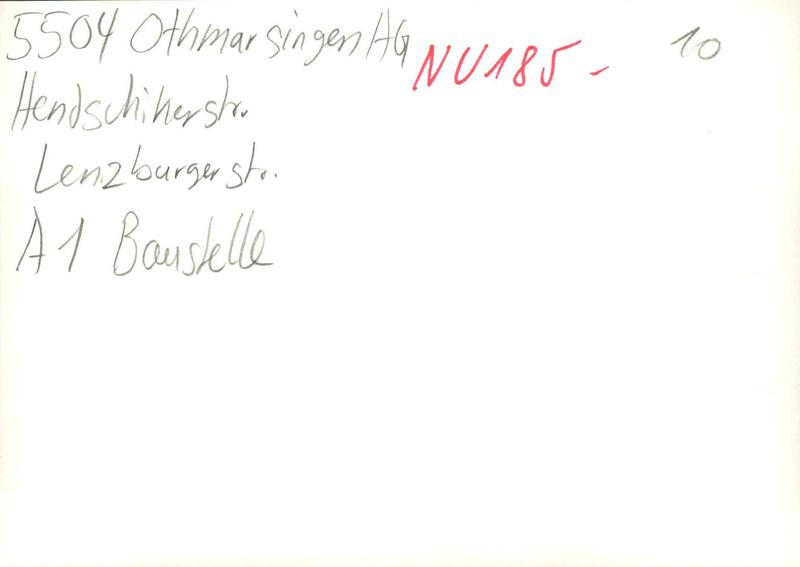 5504 Othmarsingen AG NU185- 10
Hendschikerstr.
Lenzburgerstr.
A1 Baustelle